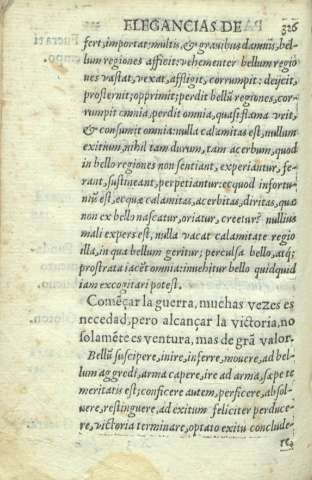 ELEGANCIAS DE 326
fert, importat: multis, & gravibus damnis, bel-
lum regiones afficit: vehementer bellum regio
nes vastat, vexat, affligit, corrumpit: deijcit,
prosternit; opprimit; perdit bellũ regiones, cor-
rumpit omnia, perdit omnia, quasi flama vrit,
& consumit omnia: nulla calamitas est, nullum
exitium, nihil tam durum, tam acerbum, quod
in bello regiones non sentiant, experiantur, fe-
rant, sustineant, perpetiantur: ecquod infortu-
niũ est, ecquæ calamitas, acerbitas, diritas, quæ
non ex bello nascatur, oriatur, creetur? nullius
mali expers est, nulla vacat calamitate regio
illa, in qua bellum geritur; perculsa bello, atq;
prostrata iacẽt omnia: invehitur bello quidquid
iam excogitari potest.
Començar la guerra, muchas vezes es
necedad, pero alcançar la victoria, no
solamẽte es ventura, mas de grã valor.
Bellũ suscipere, inire, inferre, movere, ad bel-
lum aggredi, arma capere, ire ad arma, sæpe te
meritatis est; conficere autem, perficere, absol-
vere, restinguere, ad exitum feliciter perduce-
re, victoria terminare, optato exitu conclude-